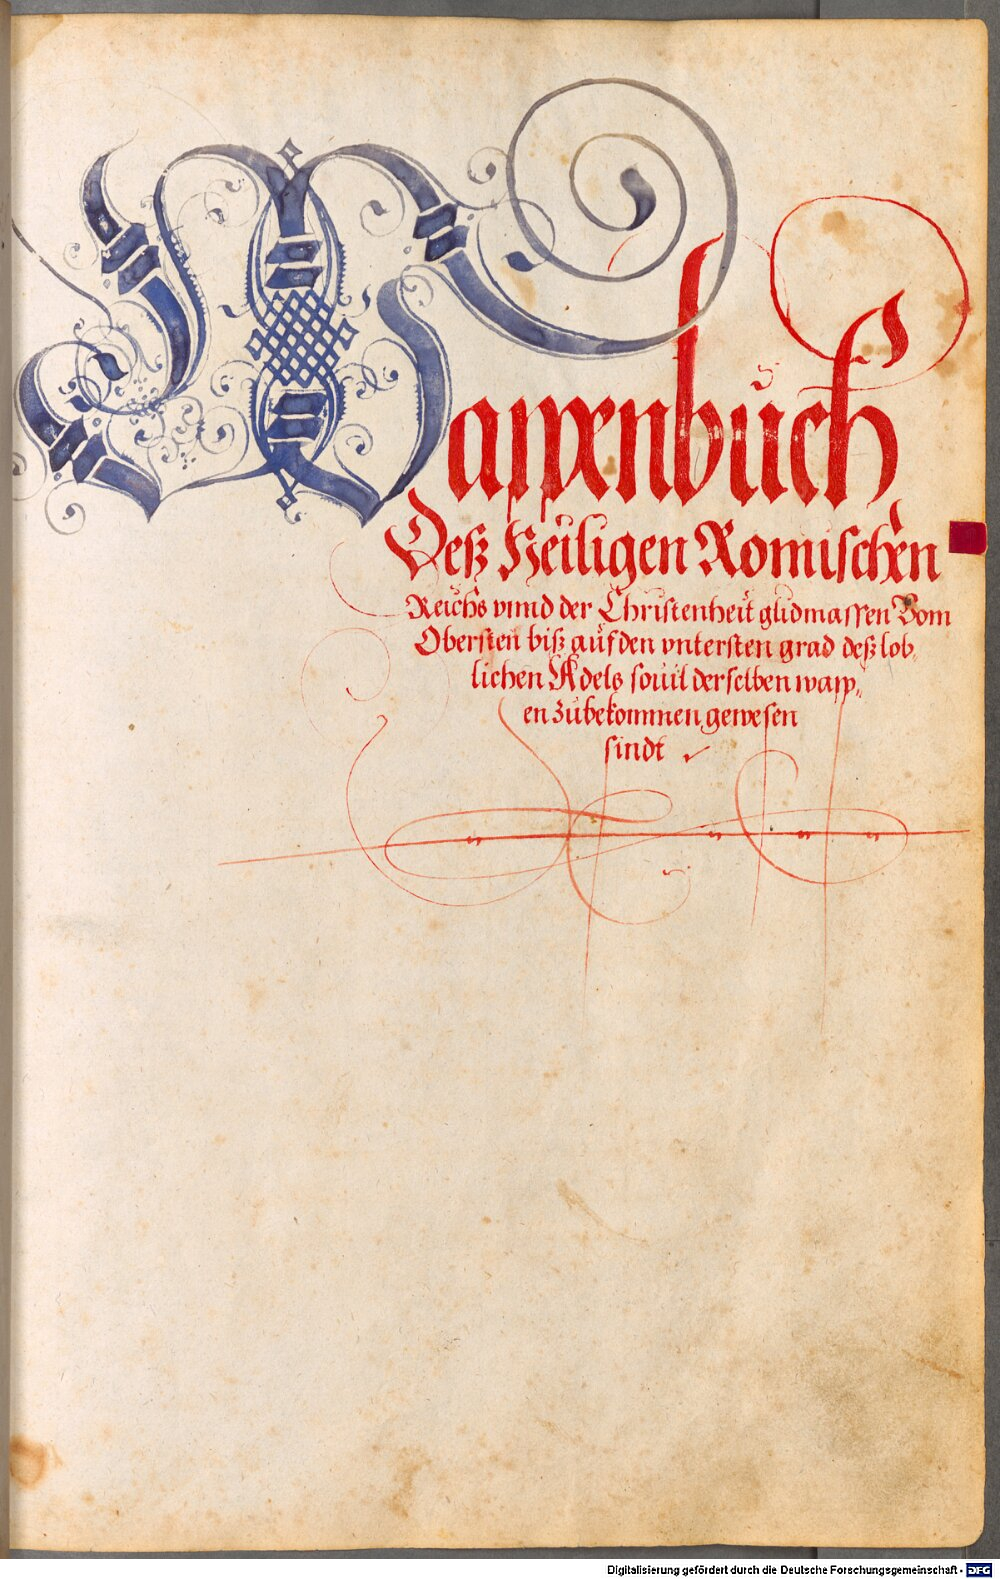 Wappenbuch
Deß Heiligen Romischen
Reichs vnnd der Christenheit glidmassen Vom
Obersten biß auf den vntersten grad deß lob„
lichen Adels souil derselben wapp„
en zubekommen gewesen
sindt
Digitalisierung gefördert durch die Deutsche Forschungsgemeinschaft - DFG